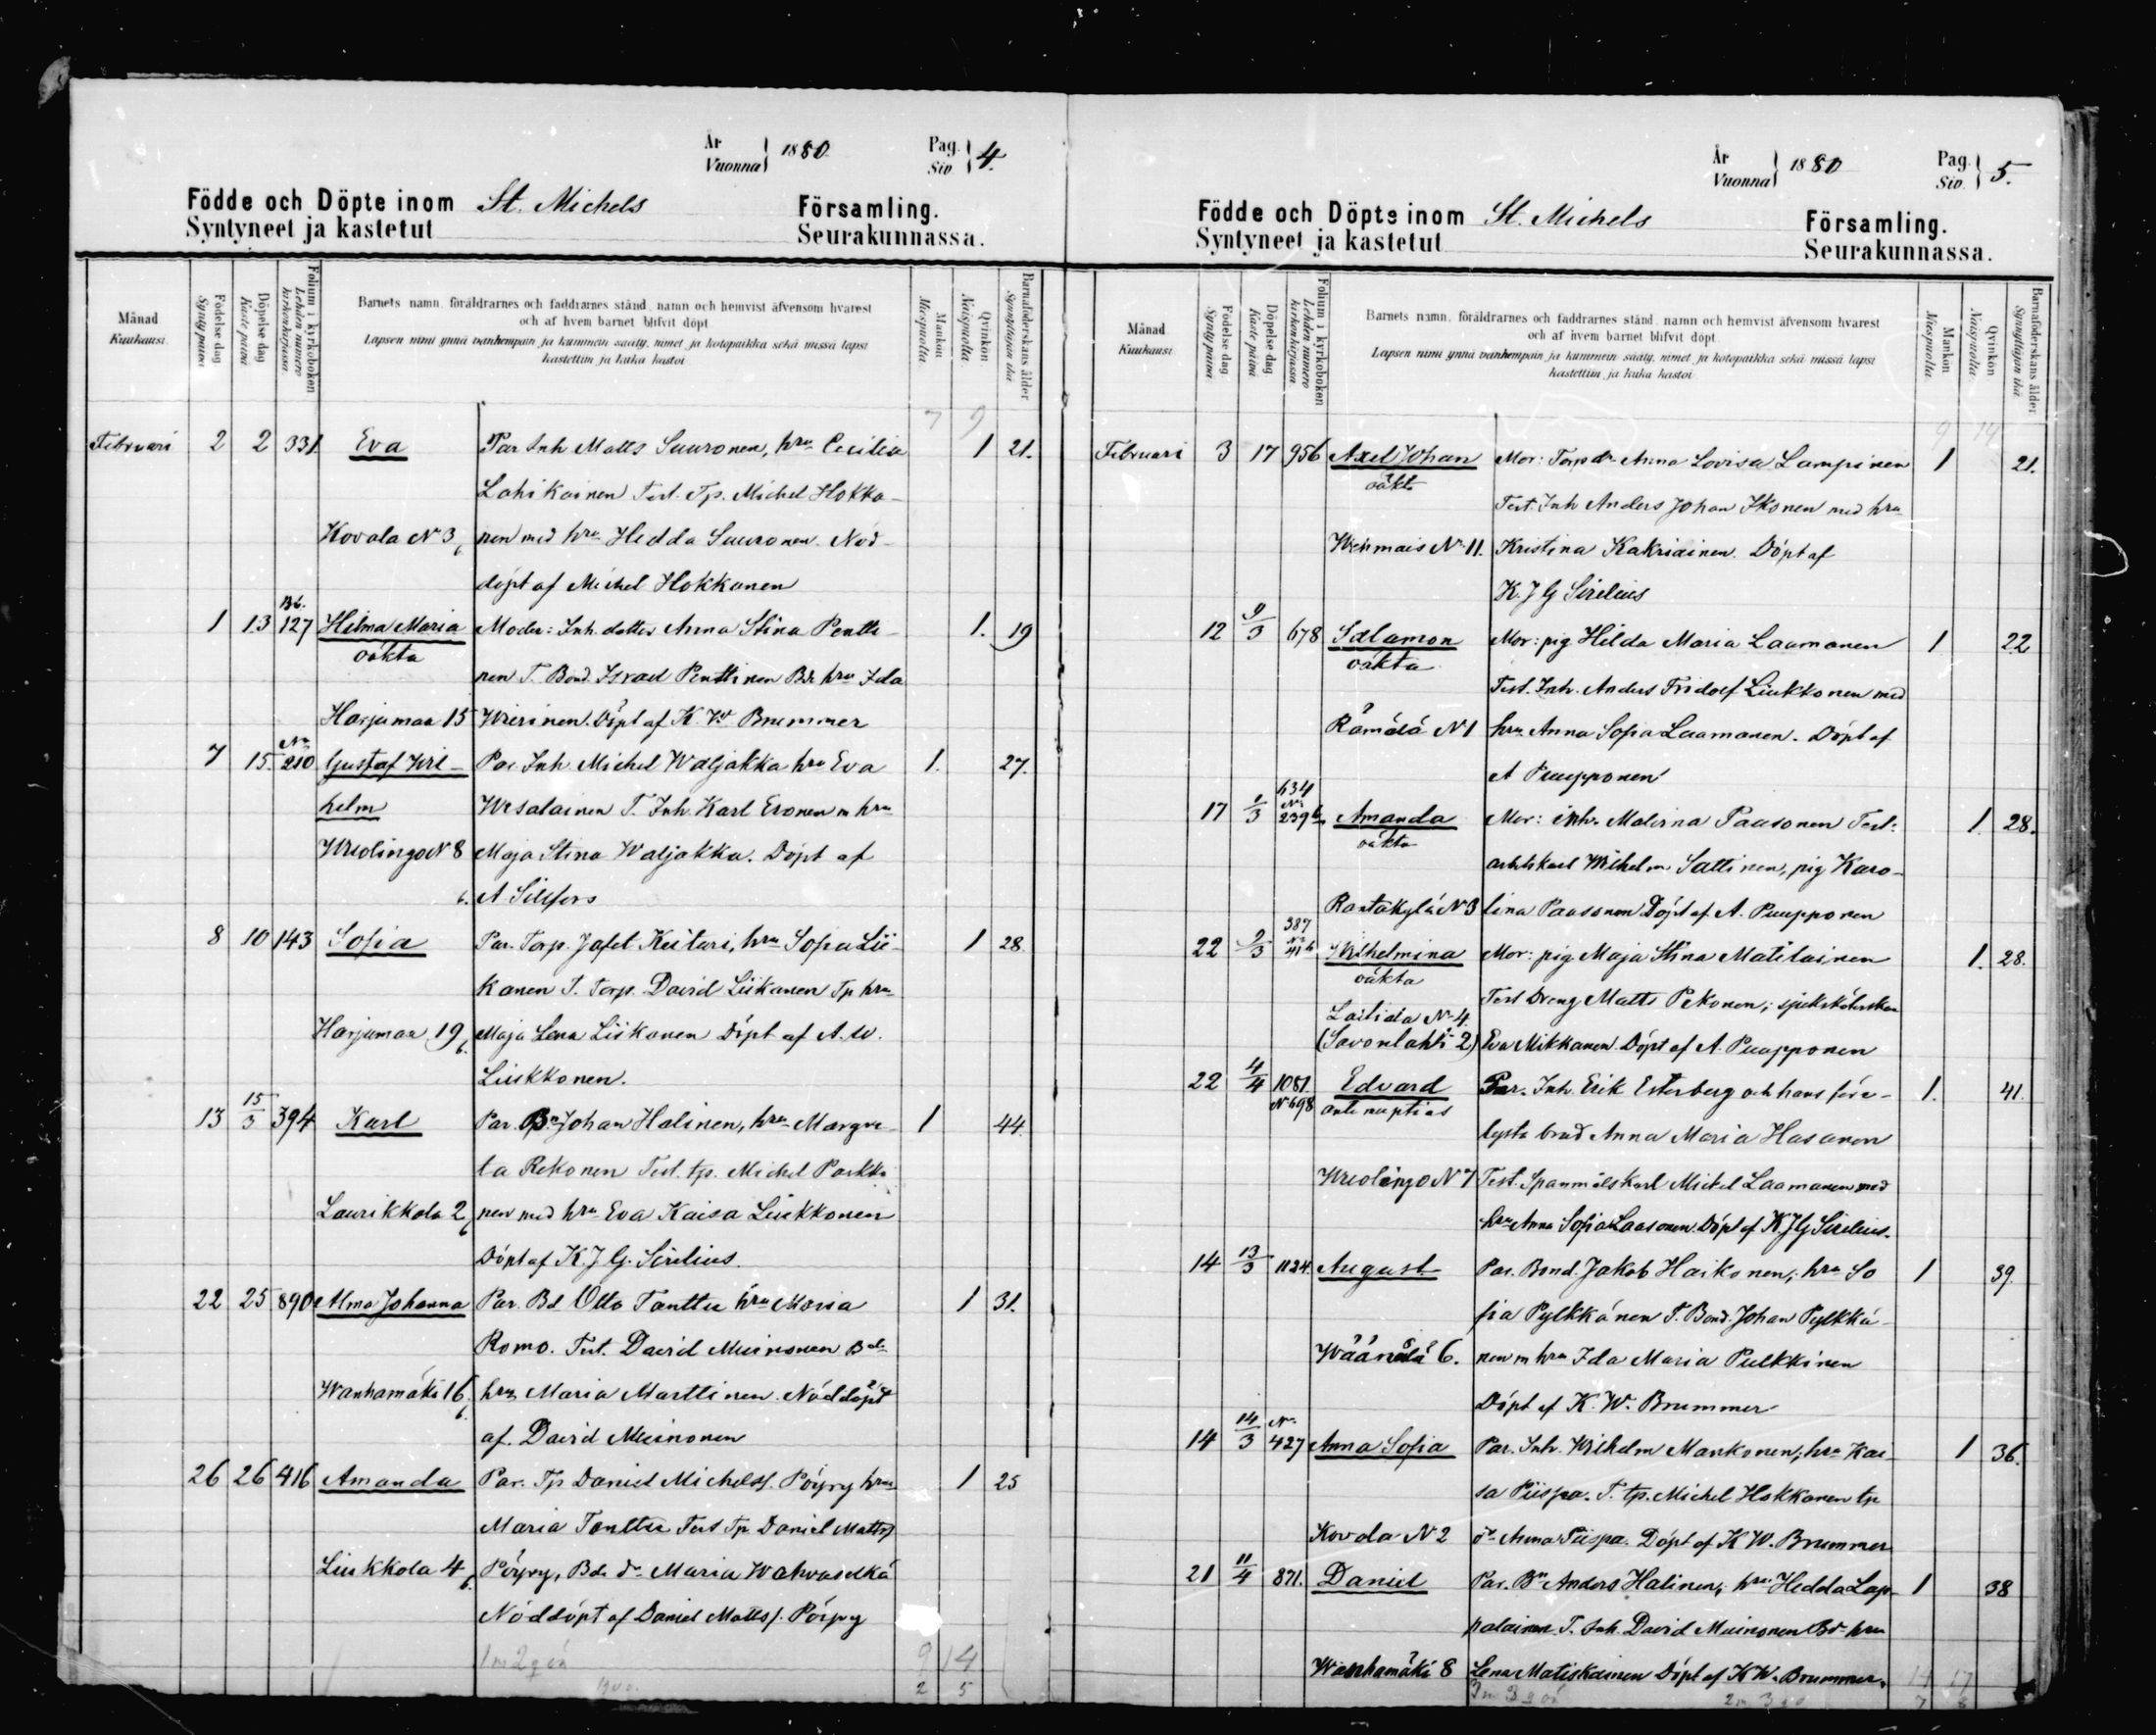 År
Vuonna } 1880. Pag. Siv. } 4.
Födde och Döpte inom St. Michels Församling.
Syntyneet ja kastetut Seurakunnassa.
Månad
Kuukausi.
Födelse dag
Synty päivä
Döpelse dag
Kaste päivä
Folium i kyrkoboken
Lehden numero kirkonkirjassa.
Barnets namn, föräldrarnes och faddrarnes stånd, namn och hemvist äfvensom hvarest
och af hvem barnet blifvit döpt
Lapsen nimi ynnä vanhempain ja kummein sääty, nimet ja kotopaikka sekä missä lapsi
kastettiin ja kuka kastoi
Mankön
Miespuolia.
Qvinkön.
Naispuolia.
Barnaföderskans ålder
Synnyttäjän ikä
7 9
Februari 2 2 331. Eva Par Inh Matts Suuronen, hru Cecilia 1 21.
Lahikainen Test. Tp. Michel Hokka-
Kovala N 3, nen med hru Hedda Suuronen. Nöd-
döpt af Michel Hokkanen
1 13 127 Hilma Maria Moder: Inh. dotter Anna Stina Pentti- 1. 19
oäkta nen T. Bond. Israel Penttinen Bde hru Ida
Harjumaa 15 Döpt af K W Brummer
7 15. 210 Gustaf Wil- Par Inh. Michel Waljakka hru Eva 1. 27.
helm Wesalainen T. Inh. Karl Eronen m hru
N 8 Maja Stina Waljakka. Döpt af
A Silfors
8 10 143 Sofia Par. Torp. Jafet Keituri, hru Sofia Lii- 1 28.
kanen T. Torp. David Liikanen Tp hru
Harjumaa 19, Maja Lena Liikanen Döpt af A. W.
Liukkonen.
13 15/3 394 Karl Par. Bn Johan Halinen, hru Margre- 1 44.
ta Rekonen Test. tp. Michel Parkki
Laurikkala 2, nen med hru Eva Kaisa Liukkonen
Döpt af K. J G. Sirelius.
22 25 890 Alma Johanna Par. Bd Otto Tanttu hru Maria 1 31.
Romo. Test. David Muinonen Bde
Wanhamäki 16, hru Maria Marttinen. Nöddöpt
af. David Muinonen
26 26 416 Amanda Par. Tp Daniel Michelss. Pöyry hru 1 25
Maria Tanttu Test Tp. Daniel Mattss
Liukkola 4, Pöyry, Bde dr Maria Wahvaselkä
Nöddöpt af Daniel Mattss. Pöyry
9 14
2 5
År
Vuonna } 1880 Pag. Siv. } 5.
Födde och Döpte inom St. Michels Församling.
Syntyneet ja kastetut Seurakunnassa.
Månad
Kuukausi
Födelse dag
Synty päivä
Döpelse dag
Kaste päivä
Folium i kyrkoboken
Lehden numero kirkonkirjassa
Barnets namn, föräldrarnes och faddrarnes stånd, namn och hemvist äfvensom hvarest
och af hvem barnet blifvit döpt.
Lapsen nimi ynnä vanhempain ja kummein sääty, nimet ja kotopaikka sekä missä lapsi
kastettiin ja kuka kastoi
Mankön
Miespuolia.
Qvinkön
Naispuolia.
Barnaföderskans ålder
Synnyttäjän ikä
9 14
Februari 3 17 956 Axel Johan Mor: Torp dr Anna Lovisa Lampinen 1 21.
oäkta Test. Inh Anders Johan Ikonen med hru
Wehmais No 11. Kristina Kakriainen. Döpt af
K. J G Sirelius
12 9/3 678 Salamon Mor: pig Hilda Maria Laamanen 1 22
oäkta Test. Inh. Anders Fridolf Liukkonen med
Rämälä N 1 hru Anna Sofia Laamanen. Döpt af
A Puupponen
634
17 1/3 No 239 b. Amanda Mor: inh. Malvina Paasonen Test: 1. 28.
oäkta Wilhelm Sattinen, pig Karo-
Rantakylä N 3 lina Paasonen Döpt af A. Puupponen
387
22 9/3 No 416 Wilhelmina Mor: pig Maja Stina Matilainen 1. 28.
oäkta Test Dreng Matts Pekonen, sjuksköterskan
Laitiala No 4.
(Savonlahti 2) Eva Mikkanen. Döpt af A. Puupponen
22 4/4 1081. Edvard Par. Inh Erik Esterberg och hans före- 1. 41.
N 698 ante nuptias
lysta brud Anna Maria Hasanen
N 7 Test. Spanmålskarl Michel Laamanen med
hru Anna Sofia Laasonen Döpt af K J G Sirelius.
14 13/3 1124. August Par. Bond. Jakob Haikonen, hru So 1 39
fia Pylkkänen T. Bond. Johan Pylkkä-
Wäänälä 6. nen m hru Ida Maria Pulkkinen
Döpt af K. W. Brummer
14 14/3 No 427 Anna Sofia Par. Inh. Wilhelm Mankonen, hru Kai- 1 36.
sa Piispa. T. tp. Michel Hokkanen tp
Kovala N 2 dr Anna Piispa. Döpt af K W. Brummer
21 11/4 871. Daniel Par. Bn Anders Halinen, hru Hedda Lap- 1 38
palainen T. Inh. David Muinonen Bd hru
Wanhamäki 8 Lena Matiskainen Döpt af K W. Brummer.